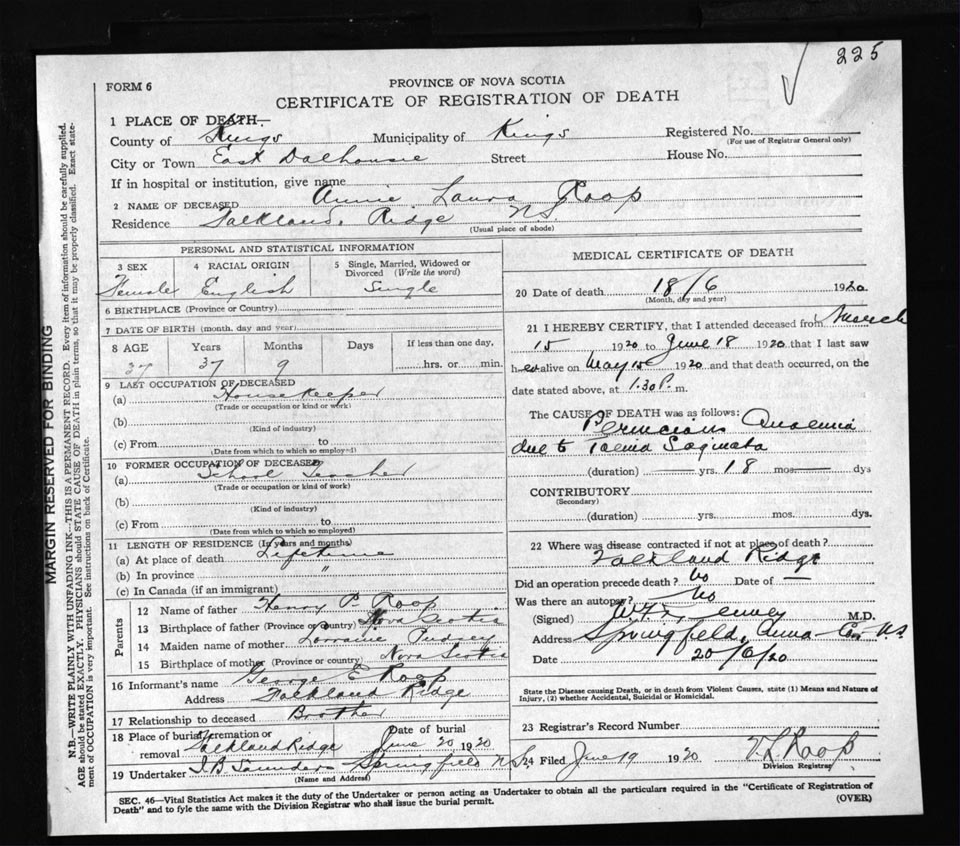 225
FORM 6
PROVINCE OF NOVA SCOTIA
CERTIFICATE OF REGISTRATION OF DEATH
1 PLACE OF DEATH—
County of Kings Municipality of Kings Registered No.
(For use of Registrar General only)
City or Town East Dalhousie Street House No.
If in hospital or institution, give name
2 NAME OF DECEASED Annie Laura Roop
Residence Falkland Ridge NS
(Usual place of abode)
PERSONAL AND STATISTICAL INFORMATION
3 SEX 4 RACIAL ORIGIN 5 Single, Married, Widowed or Divorced (Write the word)
Female English Single
6 BIRTHPLACE (Province or Country)
7 DATE OF BIRTH (month, day and year)
8 AGE Years Months Days If less than one day,
37 37 9 hrs. or min.
9 LAST OCCUPATION OF DECEASED
(a) Housekeeper
(Trade or occupation or kind or work)
(b)
(Kind of industry)
(c) From to
(Date from which to which so employed)
10 FORMER OCCUPATION OF DECEASED
(a) School Teacher
(Trade or occupation or kind of work)
(b)
(Kind of industry)
(c) From to
(Date from which to which so employed)
11 LENGTH OF RESIDENCE (In years and months)
(a) At place of death Lifetime
(b) In province "
(c) In Canada (if an immigrant)
Parents
12 Name of father Henry P. Roop
13 Birthplace of father (Province or country) Nova Scotia
14 Maiden name of mother Lorraine
15 Birthplace of mother (Province or country) Nova Scotia
16 Informant's name George E Roop
Address Falkland Ridge
17 Relationship to deceased Brother
18 Place of burial, cremation or removal Falkland Ridge Date of burial June 20 1920
19 Undertaker I.B. Saunders Springfield NS
(Name and Address)
MEDICAL CERTIFICATE OF DEATH
20 Date of death 18/6 1920
(Month, day and year)
21 I HEREBY CERTIFY, that I attended deceased from March
15 1920 to June 18 1920 that I last saw
her alive on May 15 1920 and that death occurred, on the
date stated above, at 1.30 P. m.
The CAUSE OF DEATH was as follows:
Pernicious Anaemia
due to Taenia Saginata
(duration) — yrs. 18 mos. — dys
CONTRIBUTORY
(Secondary)
(duration) yrs. mos. dys.
22 Where was disease contracted if not at place of death?
Falkland Ridge
Did an operation precede death? No Date of —
Was there an autopsy? No
(Signed) M.D.
Address Springfield, Anna Co. NS
Date 20/6/20
State the Disease causing Death, or in death from Violent Causes, state (1) Means and Nature of
Injury, (2) whether Accidental, Suicidal or Homicidal.
23 Registrar's Record Number
24 Filed June 19 1920 Roop
Division Registrar
SEC. 46—Vital Statistics Act makes it the duty of the Undertaker or person acting as Undertaker to obtain all the particulars required in the "Certificate of Registration of
Death" and to fyle the same with the Division Registrar who shall issue the burial permit. (OVER)
MARGIN RESERVED FOR BINDING
N.B.—WRITE PLAINLY WITH UNFADING INK—THIS IS A PERMANENT RECORD. Every item of information should be carefully supplied.
AGE should be stated EXACTLY. PHYSICIANS should STATE CAUSE OF DEATH in plain terms, so that it may be properly classified. Exact state-
ment of OCCUPATION is very important. See instructions on back of Certificate.